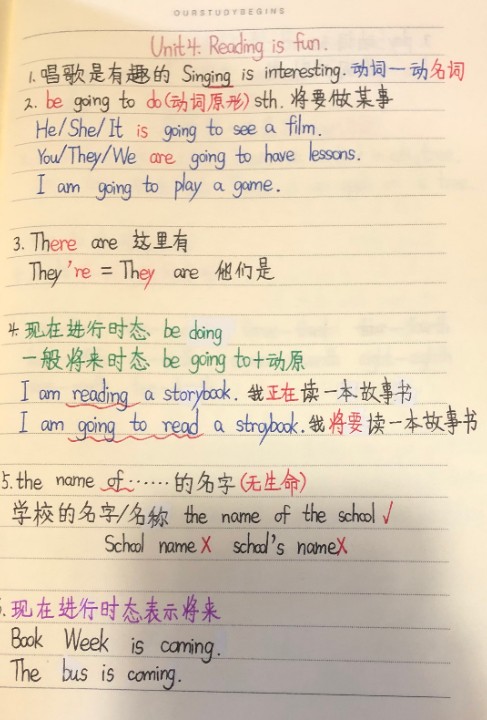 OURSTUDYBEGINS
Unit 4. Reading is fun.
1. 唱歌是有趣的 Singing is interesting. 动词—动名词
2. be going to do(动词原形) sth. 将要做某事
He/She/It is going to see a film.
You/They/We are going to have lessons.
I am going to play a game.
3. There are 这里有
They're = They are 他们是
4. 现在进行时态 be doing
一般将来时态 be going to+动原
I am reading a storybook. 我正在读一本故事书
I am going to read a stroybook. 我将要读一本故事书
5. the name of ······的名字(无生命)
学校的名字/名称 the name of the school √
School name X school's name X
现在进行时态表示将来
Book Week is coming.
The bus is coming.